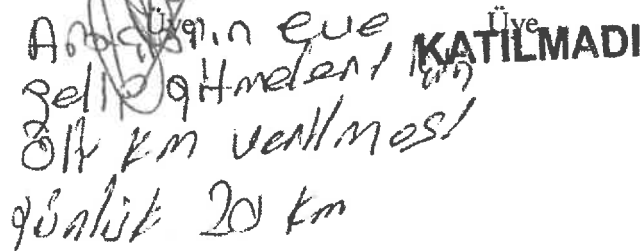 Üye Üye
Aracının eve KATILMADI
gelip gitmeleri için
Öİt km verilmesi
günlük 20 km